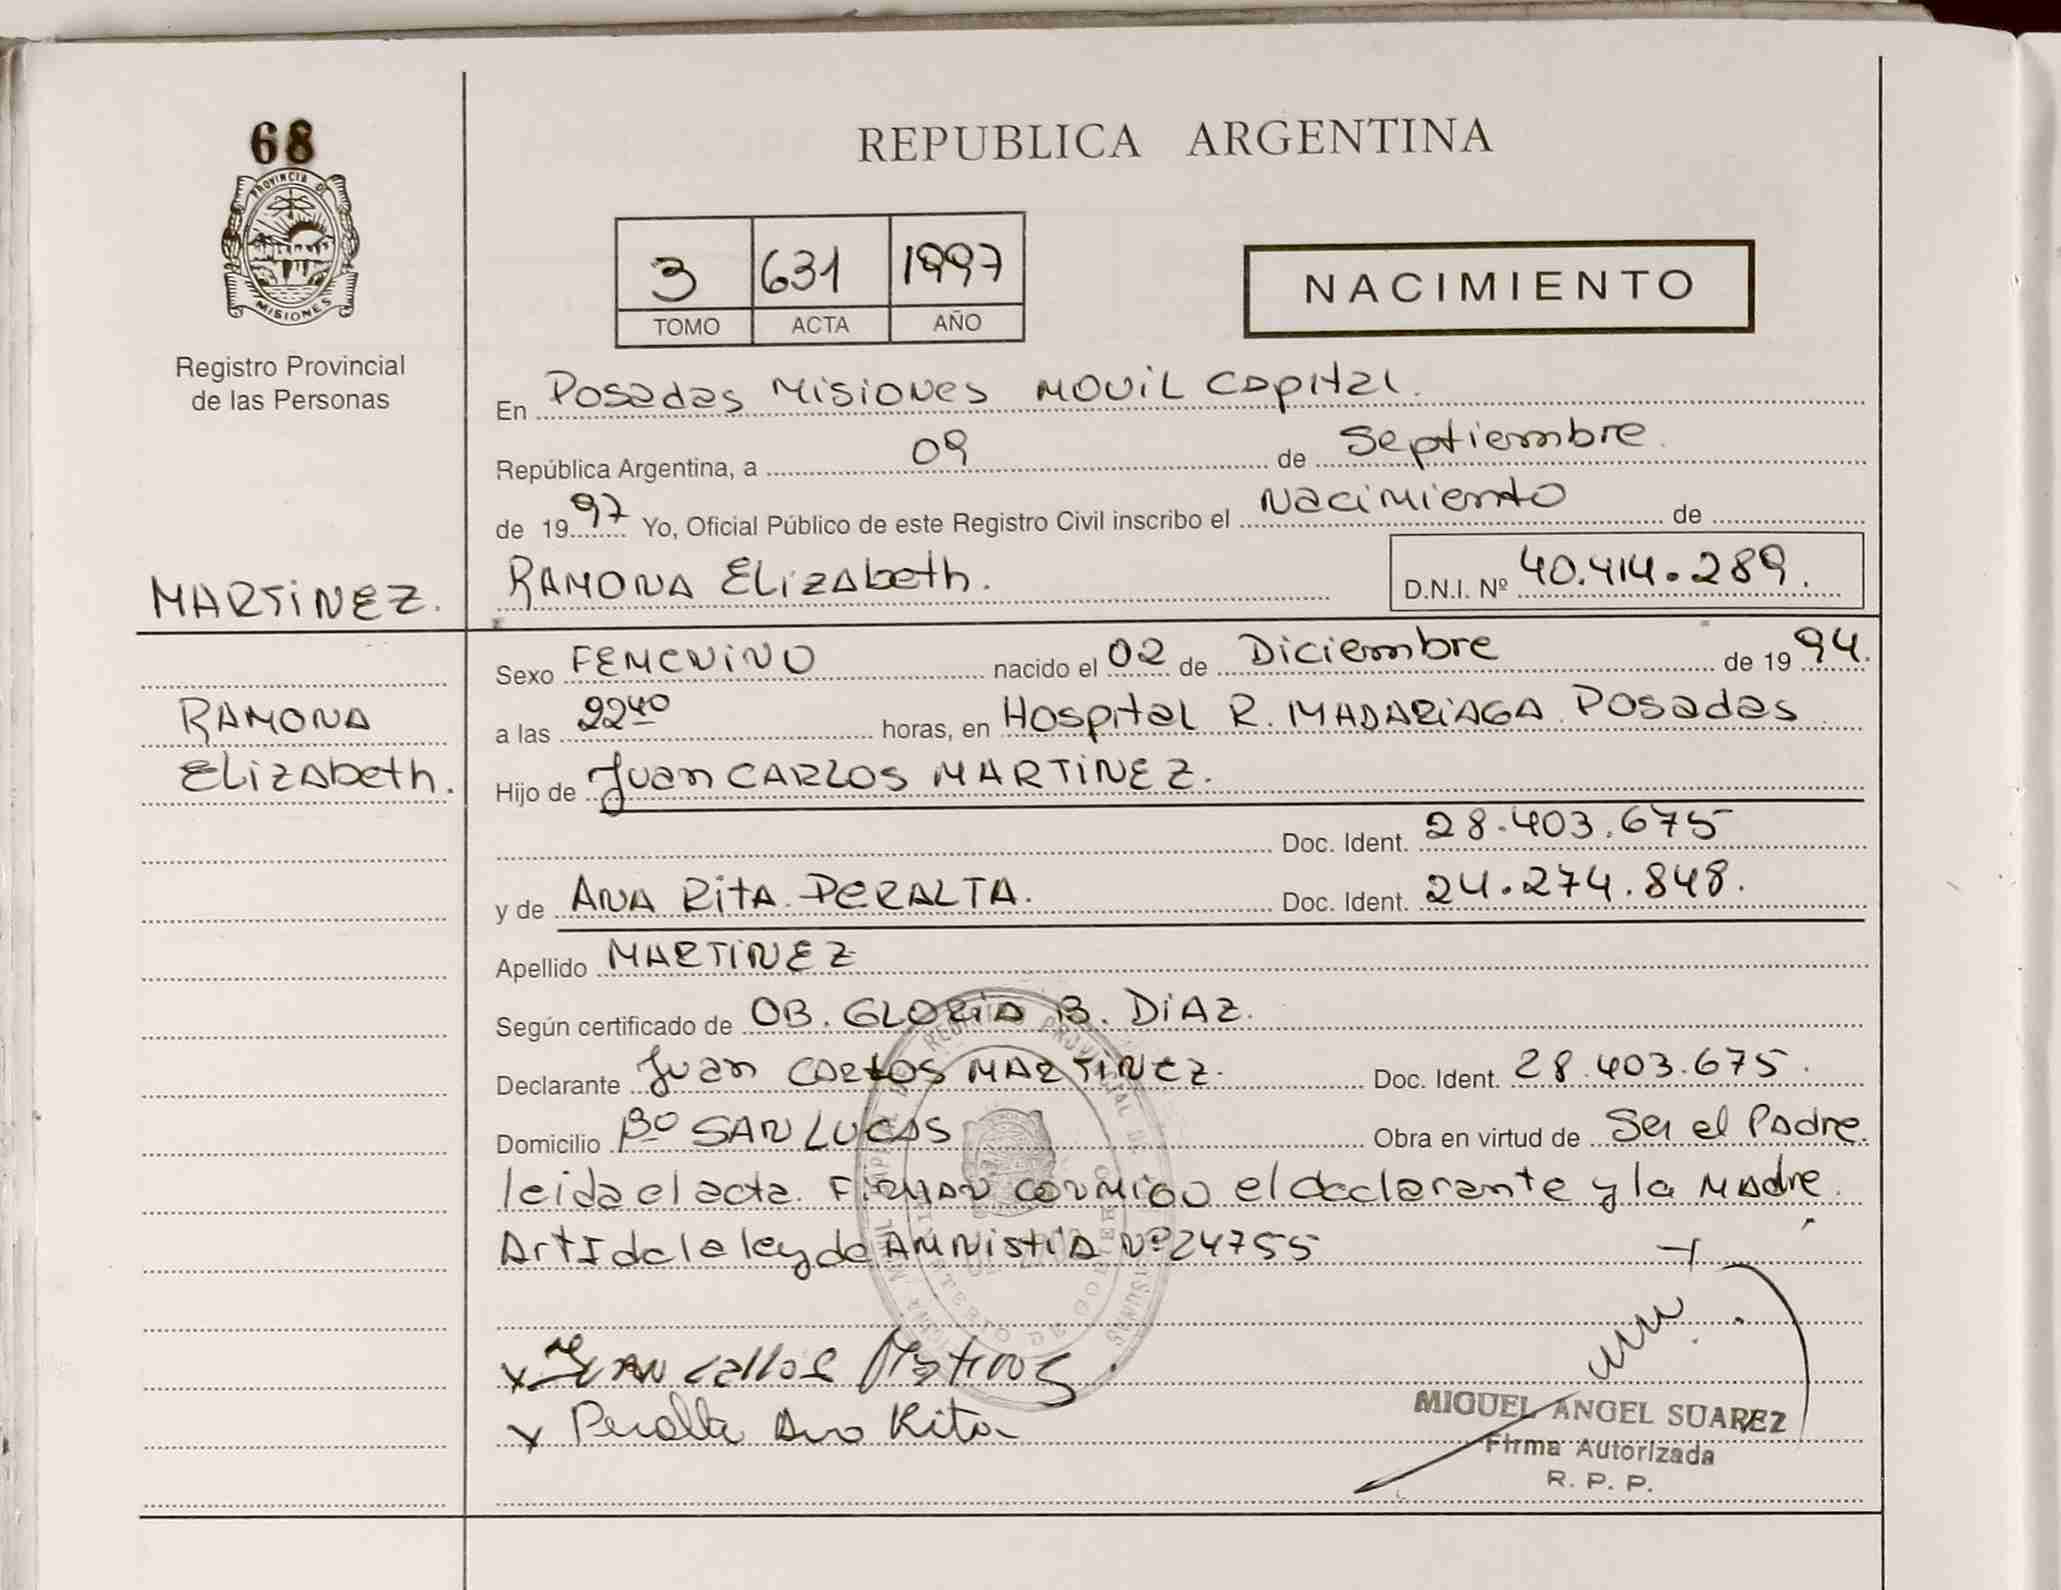 68
PROVINCIA DE
MISIONES
Registro Provincial
de las Personas
REPUBLICA ARGENTINA
3 631 1997
TOMO ACTA AÑO
NACIMIENTO
En Posadas Misiones Movil Capital.
República Argentina, a 09 de Septiembre.
de 1997 Yo, Oficial Público de este Registro Civil inscribo el Nacimiento de
MARTINEZ. RAMONA ELizAbeth. D.N.I. Nº 40.414.289.
Sexo FEMENINO nacido el 02 de Diciembre de 1994.
RAMONA
ELizAbeth.
a las 22 40 horas, en Hospital R. MADARIAGA Posadas
Hijo de Juan CARLOS MARTINEZ.
Doc. Ident. 28.403.675
y de ANA RitA PERALTA. Doc. Ident. 24.274.848.
Apellido MARTINEZ
Según certificado de OB. GLORIA B. DIAZ.
Declarante Juan CARLOS MARTINEZ. Doc. Ident. 28.403.675.
Domicilio Bº SAN LUCAS Obra en virtud de Ser el Padre.
leida el acta. FIRMAN CONMIGO el declarante y la Madre.
Art I de la ley de AMNistIA Nº 24755
x Juan Carlos
x Peralta Ana Rita
MIGUEL ANGEL SUAREZ
Firma Autorizada
R. P. P.
REGISTRO PROVINCIAL DE